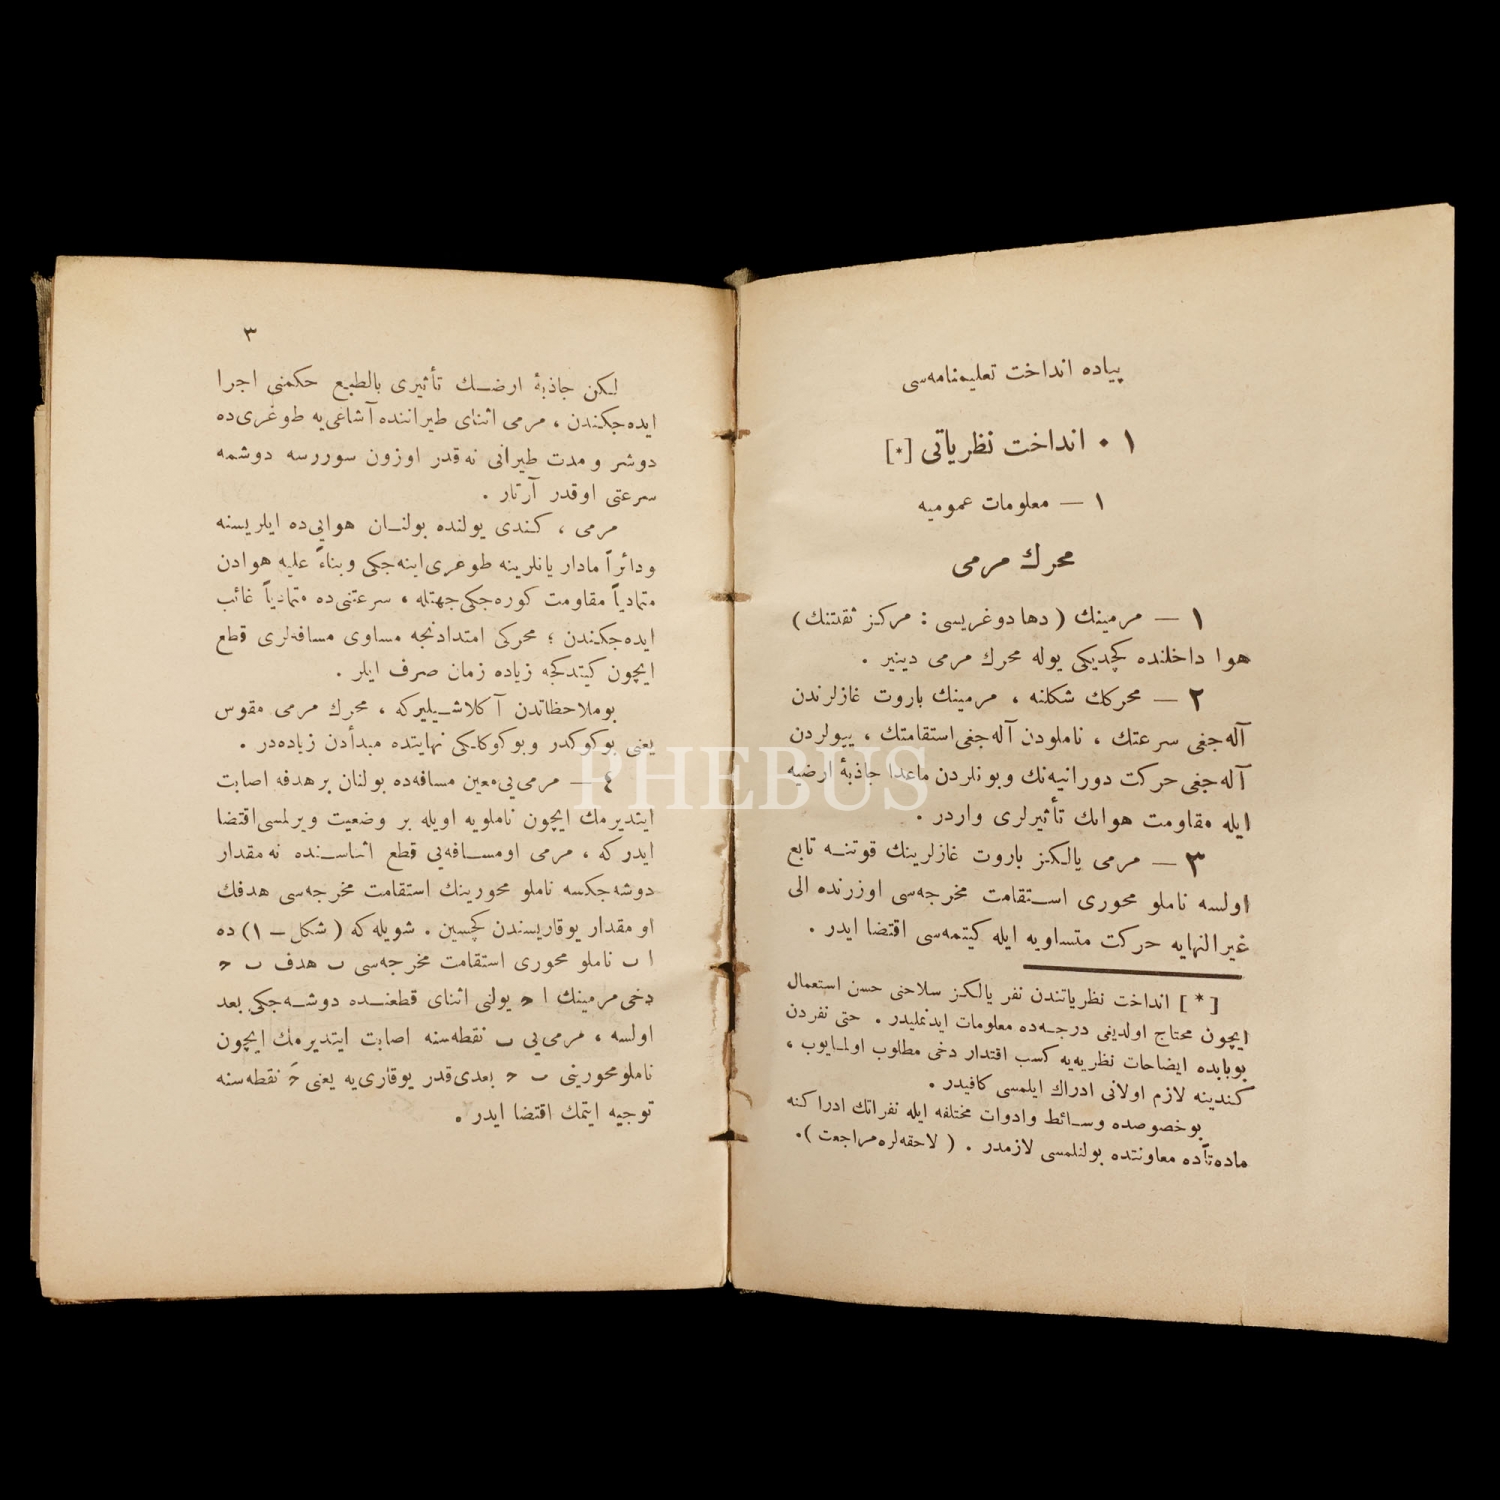 پیاده انداخت تعلیمنامه‌سی
۱ ۰ انداخت نظریاتی [*]
۱ — معلومات عمومیه
محرك مرمی
۱ — مرمینك ( دها دوغریسی : مركز ثقلتنك )
هوا داخلنده كچدیكی یوله محرك مرمی دینیر .
۲ — محركك شكلنه ، مرمینك باروت غازلرندن
آله‌جغی سرعتك ، ناملودن آله‌جغی استقامتك ، ییولردن
آله‌جغی حركت دورانیه‌نك وبونلردن ماعدا جاذبهٔ ارضیه
ایله مقاومت هوانك تأثیرلری واردر .
۳ — مرمی یالكز باروت غازلرینك قوتنه تابع
اولسه ناملو محوری استقامت مخرجه‌سی اوزرنده الی
غیر النهایه حركت متساویه ایله كیتمه‌سی اقتضا ایدر .
[ * ] انداخت نظریاتندن نفر یالكز سلاحنی حسن استعمال
ایچون محتاج اولدیغی درجه‌ده معلومات ایدنملیدر . حتی نفردن
بوبابده ایضاحات نظریه‌یه كسب اقتدار دخی مطلوب اولمایوب ،
كندینه لازم اولانی ادراك ایلمسی كافیدر .
بوخصوصده وسائط وادوات مختلفه ایله نفراتك ادراكنه
ماده‌تاً ده معاونتده بولنلمسی لازمدر . ( لاحقه‌لره مراجعت ) .
۳
لكن جاذبهٔ ارضك تأثیری بالطبع حكمنی اجرا
ایده‌جكندن ، مرمی اثنای طیراننده آشاغی‌یه طوغری‌ده
دوشر و مدت طیرانی نه‌قدر اوزون سوررسه دوشمه
سرعتی اوقدر آرتار .
مرمی ، كندی یولنده بولنان هوایی‌ده ایلریسنه
ودائراً مادار یانلرینه طوغری ایته‌جكی وبناءً علیه هوادن
متمادیاً مقاومت كوره‌جكی جهتله ، سرعتنی‌ده متمادیاً غائب
ایده‌جكندن ؛ محركی امتدادنجه مساوی مسافه‌لری قطع
ایچون كیتدكجه زیاده زمان صرف ایلر .
بوملاحظاتدن آكلاشیلیركه ، محرك مرمی مقوس
یعنی بوكوكدر وبوكوكلكی نهایتده مبدأدن زیاده‌در .
٤ — مرمی‌یی معین مسافه‌ده بولنان برهدفه اصابت
ایتدیرمك ایچون ناملویه اویله بر وضعیت ویرلمسی اقتضا
ایدركه ، مرمی اومسافه‌یی قطع اثناسنده نه مقدار
دوشه‌جكسه ناملو محورینك استقامت مخرجه‌سی هدفك
او مقدار یوقاریسندن كچسین . شویله‌كه ( شكل — ۱ ) ده
ا ب ناملو محوری استقامت مخرجه‌سی ب هدف ب ح
دخی مرمینك ا ح یولنی اثنای قطعنده دوشه‌جكی بعد
اولسه ، مرمی‌یی ب نقطه‌سنه اصابت ایتدیرمك ایچون
ناملو محورینی ب ح بعدی قدر یوقاری‌یه یعنی حَ نقطه‌سنه
توجیه ایتمك اقتضا ایدر .
PHEBUS